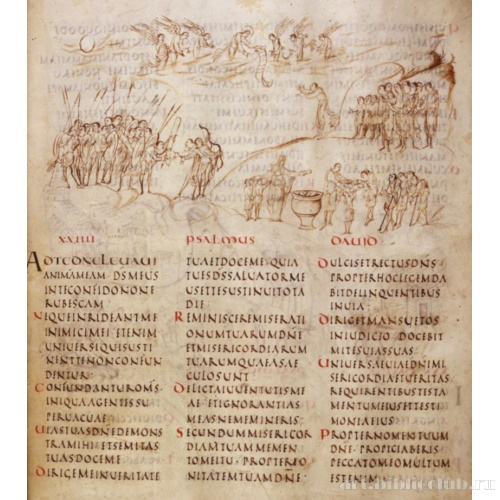 XXIIII
ADTEDNELEUAUI
ANIMAMEAM DSMEUS
INTECONFIDONONE
RUBESCAM
NEQUEINRIDEANTME
INIMICIMEI ETENIM
UNIUERSIQUISUSTI
NENTTENONCONFUN
DENTUR
CONFUNDANTUROMS
INIQUAAGENTESSU
PERUACUAE
UIASTUASDNEDEMONS
TRAMIHIETSEMITAS
TUASDOCEME
DIRIGEMEINUERITATE
PSALMUS
TUAETDOCEME QUIA
TUESDSSALUATORME
USETTESUSTINUITOTA
DIE
REMINISCEREMISERATI
ONUMTUARUMDNE
ETMISERICORDIARUM
TUARUMQUAEASAE
CULOSUNT
DELICTAIUUENTUTISME
AE ETIGNORANTIAS
MEASNEMEMINERIS
SECUNDUMMISERICOR
DIAMTUAMMEMEN
TOMEITU PROPTERBO
NITATEMTUAMDNE
DAUID
DULCISETRECTUSDNS
PROPTERHOCLEGEMDA
BITDELINQUENTIBUS
INUIA
DIRIGETMANSUETOS
INIUDICIO DOCEBIT
MITESUIASSUAS
UNIUERSAEUIAEDNIMI
SERICORDIAETUERITAS
REQUIRENTIBUSTESTA
MENTUMEIUSETTESTI
MONIAEIUS
PROPTERNOMENTUUM
DNE PROPICIABERIS
PECCATOMEOMULTUM
ESTENIM
art.biblioclub.ru